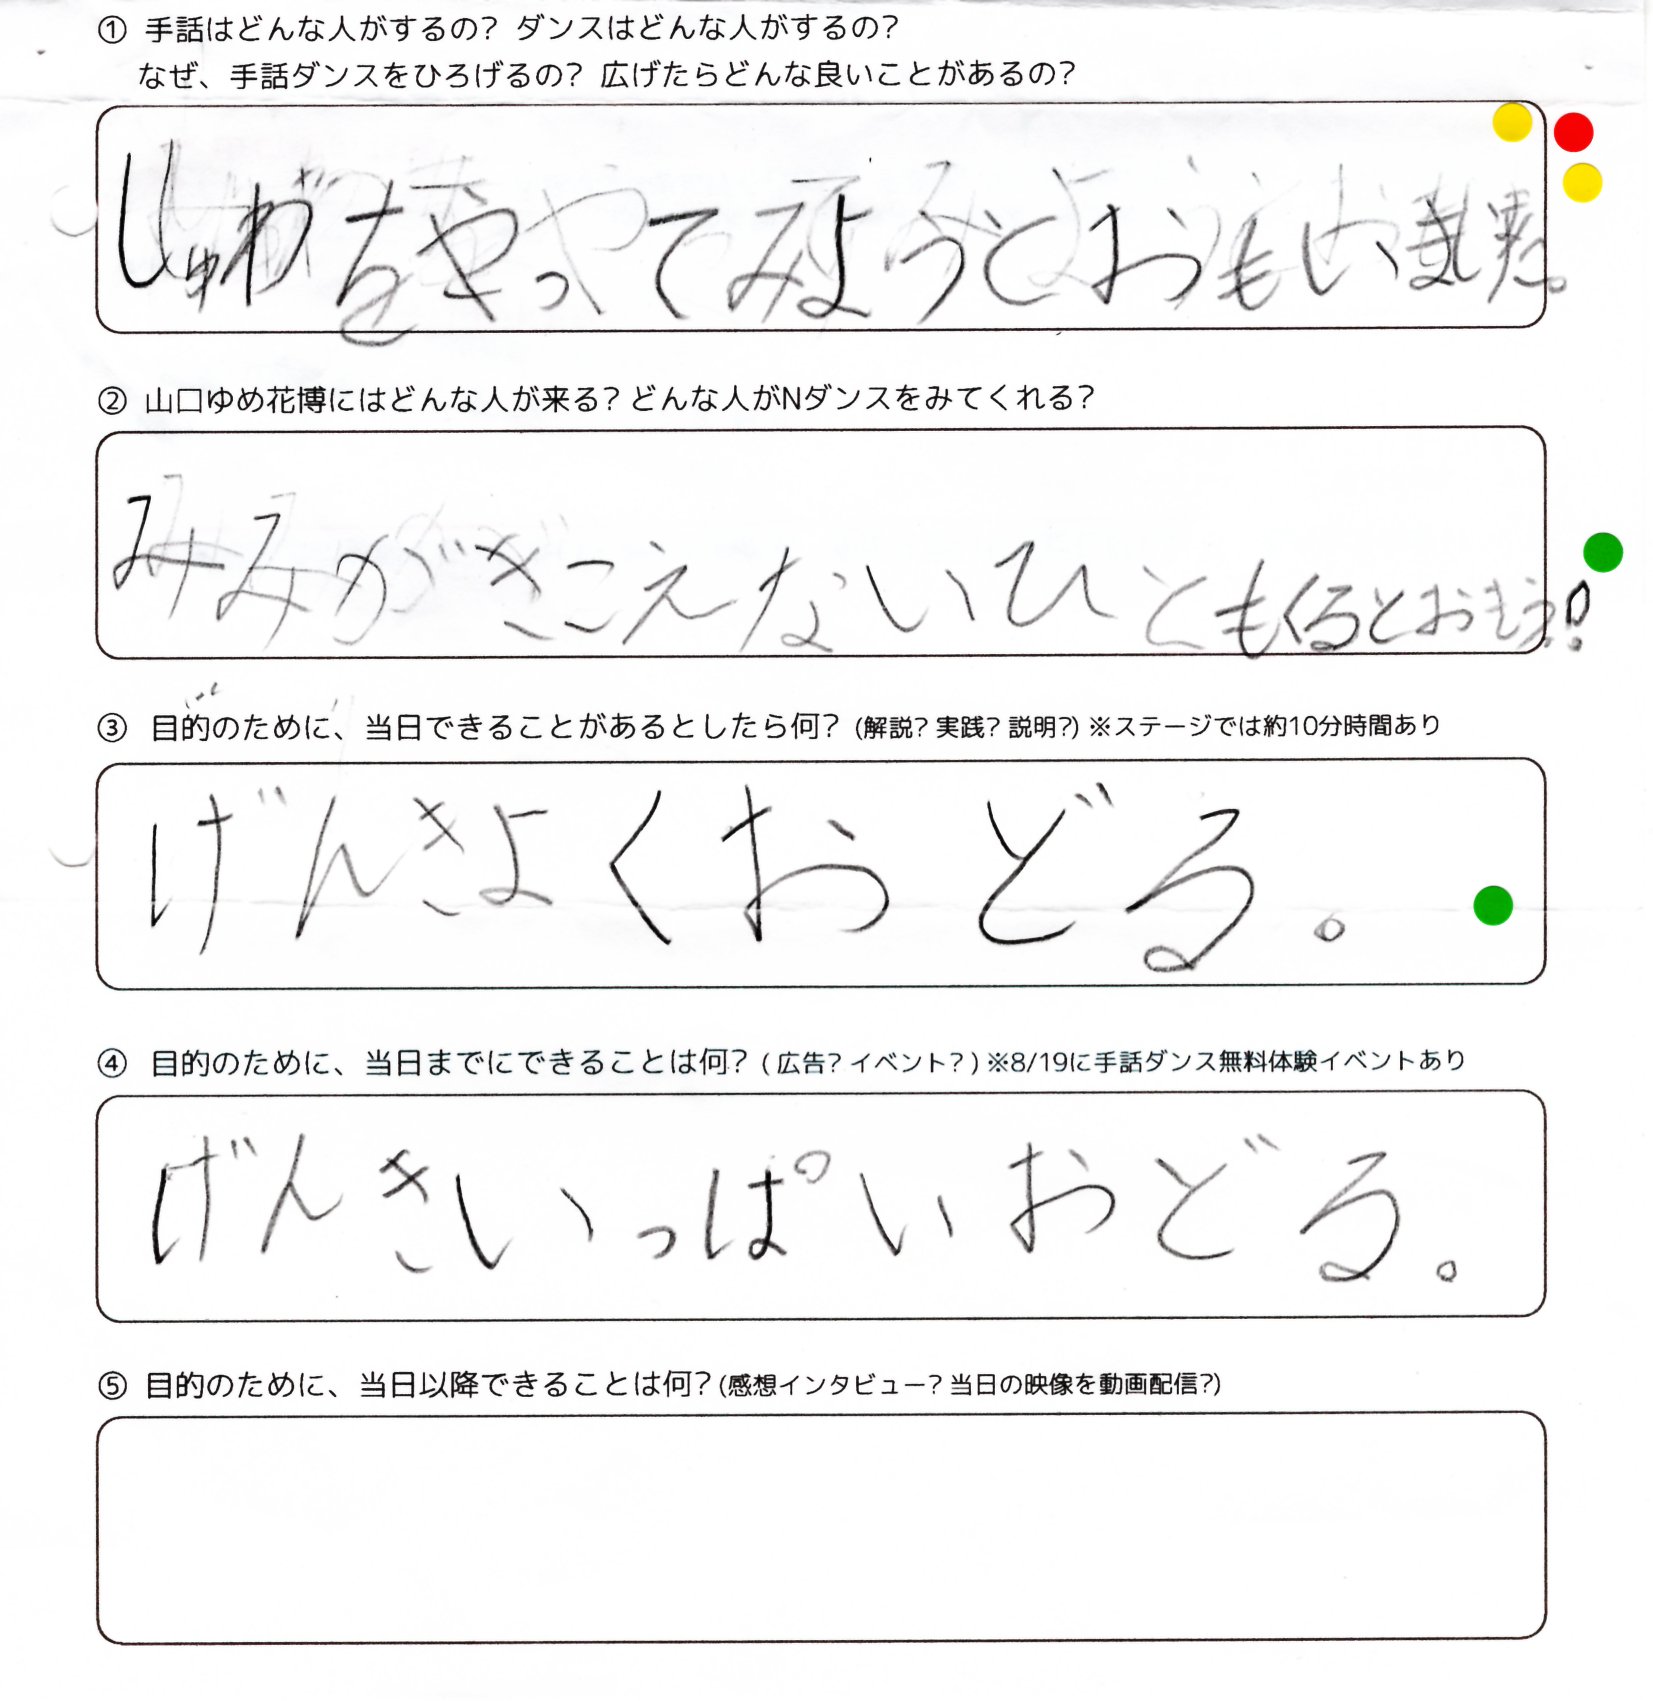 ① 手話はどんな人がするの? ダンスはどんな人がするの?
なぜ、手話ダンスをひろげるの? 広げたらどんな良いことがあるの?
しゅわをやってみようとおもいました。
② 山口ゆめ花博にはどんな人が来る? どんな人がNダンスをみてくれる?
みみがきこえないひともくるとおもう!
③ 目的のために、当日できることがあるとしたら何? (解説? 実践? 説明?) ※ステージでは約10分時間あり
げんきよくおどる。
④ 目的のために、当日までにできることは何? ( 広告? イベント? ) ※8/19に手話ダンス無料体験イベントあり
げんきいっぱいおどる。
⑤ 目的のために、当日以降できることは何? (感想インタビュー? 当日の映像を動画配信?)